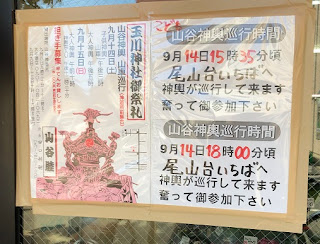 玉川神社御祭礼
山谷神輿 山車巡行
九月十四日(土)
九月十五日(日)
山谷睦
こども
山谷神輿巡行時間
9月14日15時35分頃
尾山台いちばへ
神輿が巡行して来ます
奮って御参加下さい
山谷神輿巡行時間
9月14日18時00分頃
尾山台いちばへ
神輿が巡行して来ます
奮って御参加下さい